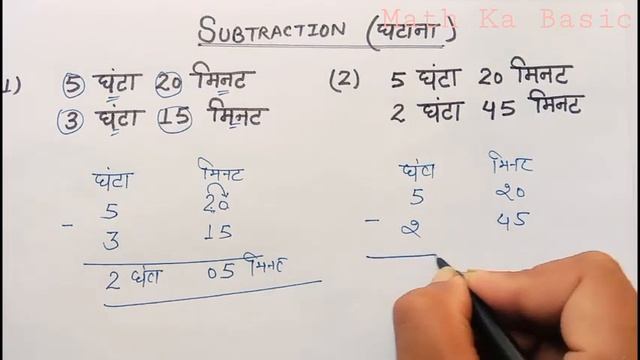 Math Ka Basic
SUBTRACTION (घटाना)
1) 5 घंटा 20 मिनट
3 घंटा 15 मिनट
घंटा मिनट
5 20
- 3 15
2 घंटा 05 मिनट
(2) 5 घंटा 20 मिनट
2 घंटा 45 मिनट
घंटा मिनट
5 20
- 2 45